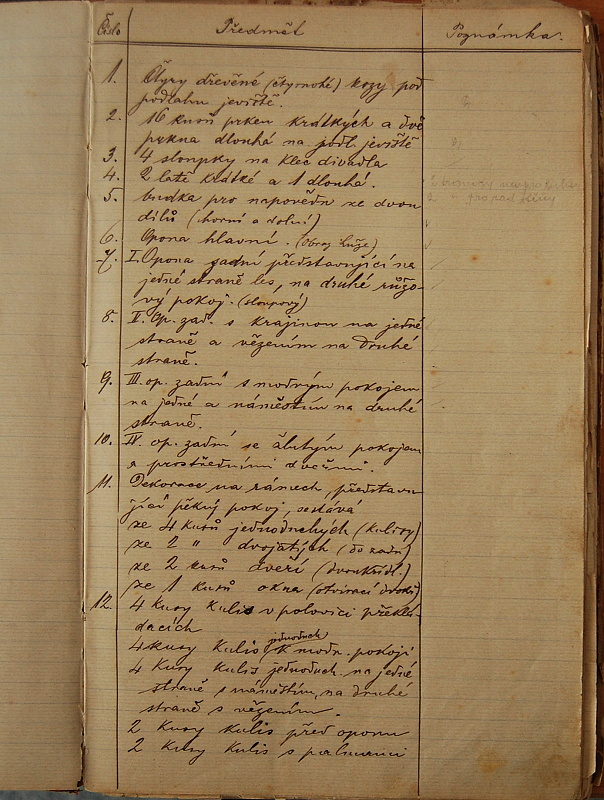 Číslo Předmět Poznámka.
1. Čtyry dřevěné (čtyrnohé) kozy pod
podlahu jeviště.
2. 16 kusů prken krátkých a dvě
prkna dlouhá na podl. jeviště
3. 4 sloupky na klec divadla
4. 2 latě krátké a 1 dlouhá.
5. budka pro nápovědu ze dvou
dílů (horní a dolní)
6. Opona hlavní. (obraz Luže)
7. I. Opona zadní představující na
jedné straně les, na druhé růžo-
vý pokoj. (sloupový)
8. II. Op. zad. s krajinou na jedné
straně a vězením na druhé
straně.
9. III. op. zadní s modrým pokojem
na jedné a náměstím na druhé
straně.
10. IV. op. zadní se žlutým pokojem
s prostředními dveřmi.
11. Dekorace na rámech, představu-
jící pěkný pokoj, sestává
ze 4 kusů jednoduchých (kulisy)
ze 2 " dvojatých (do zadu)
ze 2 kusů dveří (dvoukřídl.)
ze 1 kusů okna (otvírací)
12. 4 kusy kulis v polovici překlá-
dacích
4 kusy kulis jednoduch k modr. pokoji
4 kusy kulis jednoduch. na jedné
straně s náměstím, na druhé
straně s vězením.
2 kusy kulis před oponu
2 kusy kulis s palmami